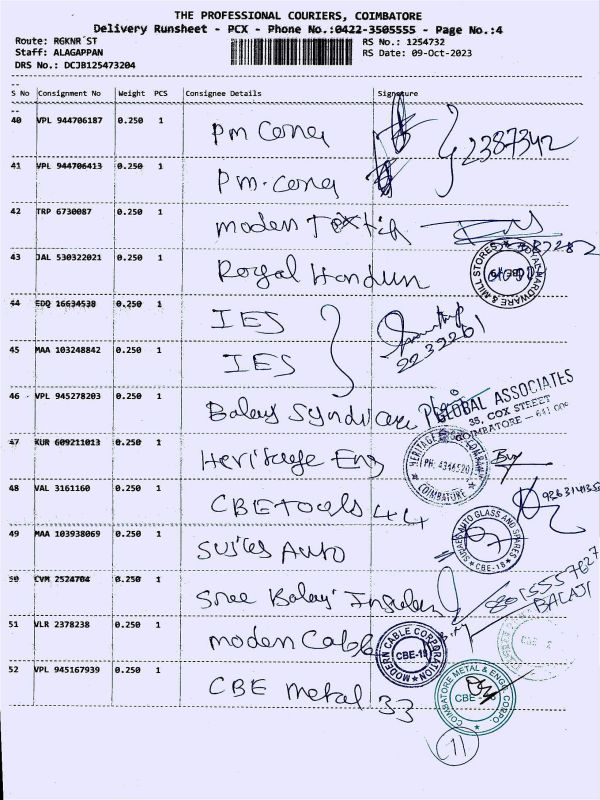 THE PROFESSIONAL COURIERS, COIMBATORE
Delivery Runsheet - PCX - Phone No.:0422-3505555 - Page No.:4
Route: RGKNR`ST RS No.: 1254732
Staff: ALAGAPPAN RS Date: 09-Oct-2023
DRS No.: DCJB125473204
S No Consignment No Weight PCS Consignee Details Signature
40 VPL 944706187 0.250 1 Pm Cena
2387342
41 VPL 944706413 0.250 1 Pm.cena
42 TRP 6730087 0.250 1 moden Textil
43 JAL 530322021 0.250 1 Royal Hardun
ROYAL HARDWARE & MILL STORES
44 EDQ 16634538 0.250 1 IES
45 MAA 103248842 0.250 1 IES
46 VPL 945278203 0.250 1 Balay Syndicate
GLOBAL ASSOCIATES
35, COX STREET
COIMBATORE - 641 00
47 KUR 609211013 0.250 1 Heritage Eng
HERITAGE COMPANY PH: 4346520 COIMBATORE
48 VAL 3161160 0.250 1 CBE Tools 44
49 MAA 103938069 0.250 1 Sujles Auto
AUTO GLASS AND SPARES CBE-18
50 CVM 2524704 0.250 1 Sree Balaji Insulan
BALAJI
51 VLR 2378238 0.250 1 moden Cable
MODERN CABLE CORPORATION CBE-18
52 VPL 945167939 0.250 1 CBE metal 33
COIMBATORE METAL & ENGG. CORPO. CBE
11